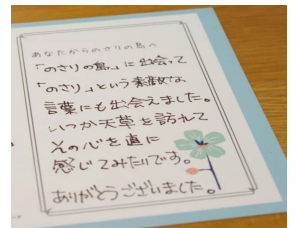 あなたからのさりの島へ
「のさりの島」に出会って
「のさり」という素敵な
言葉にも出会えました。
いつか天草を訪れて
その心を直に
感じてみたいです。
ありがとうございました。